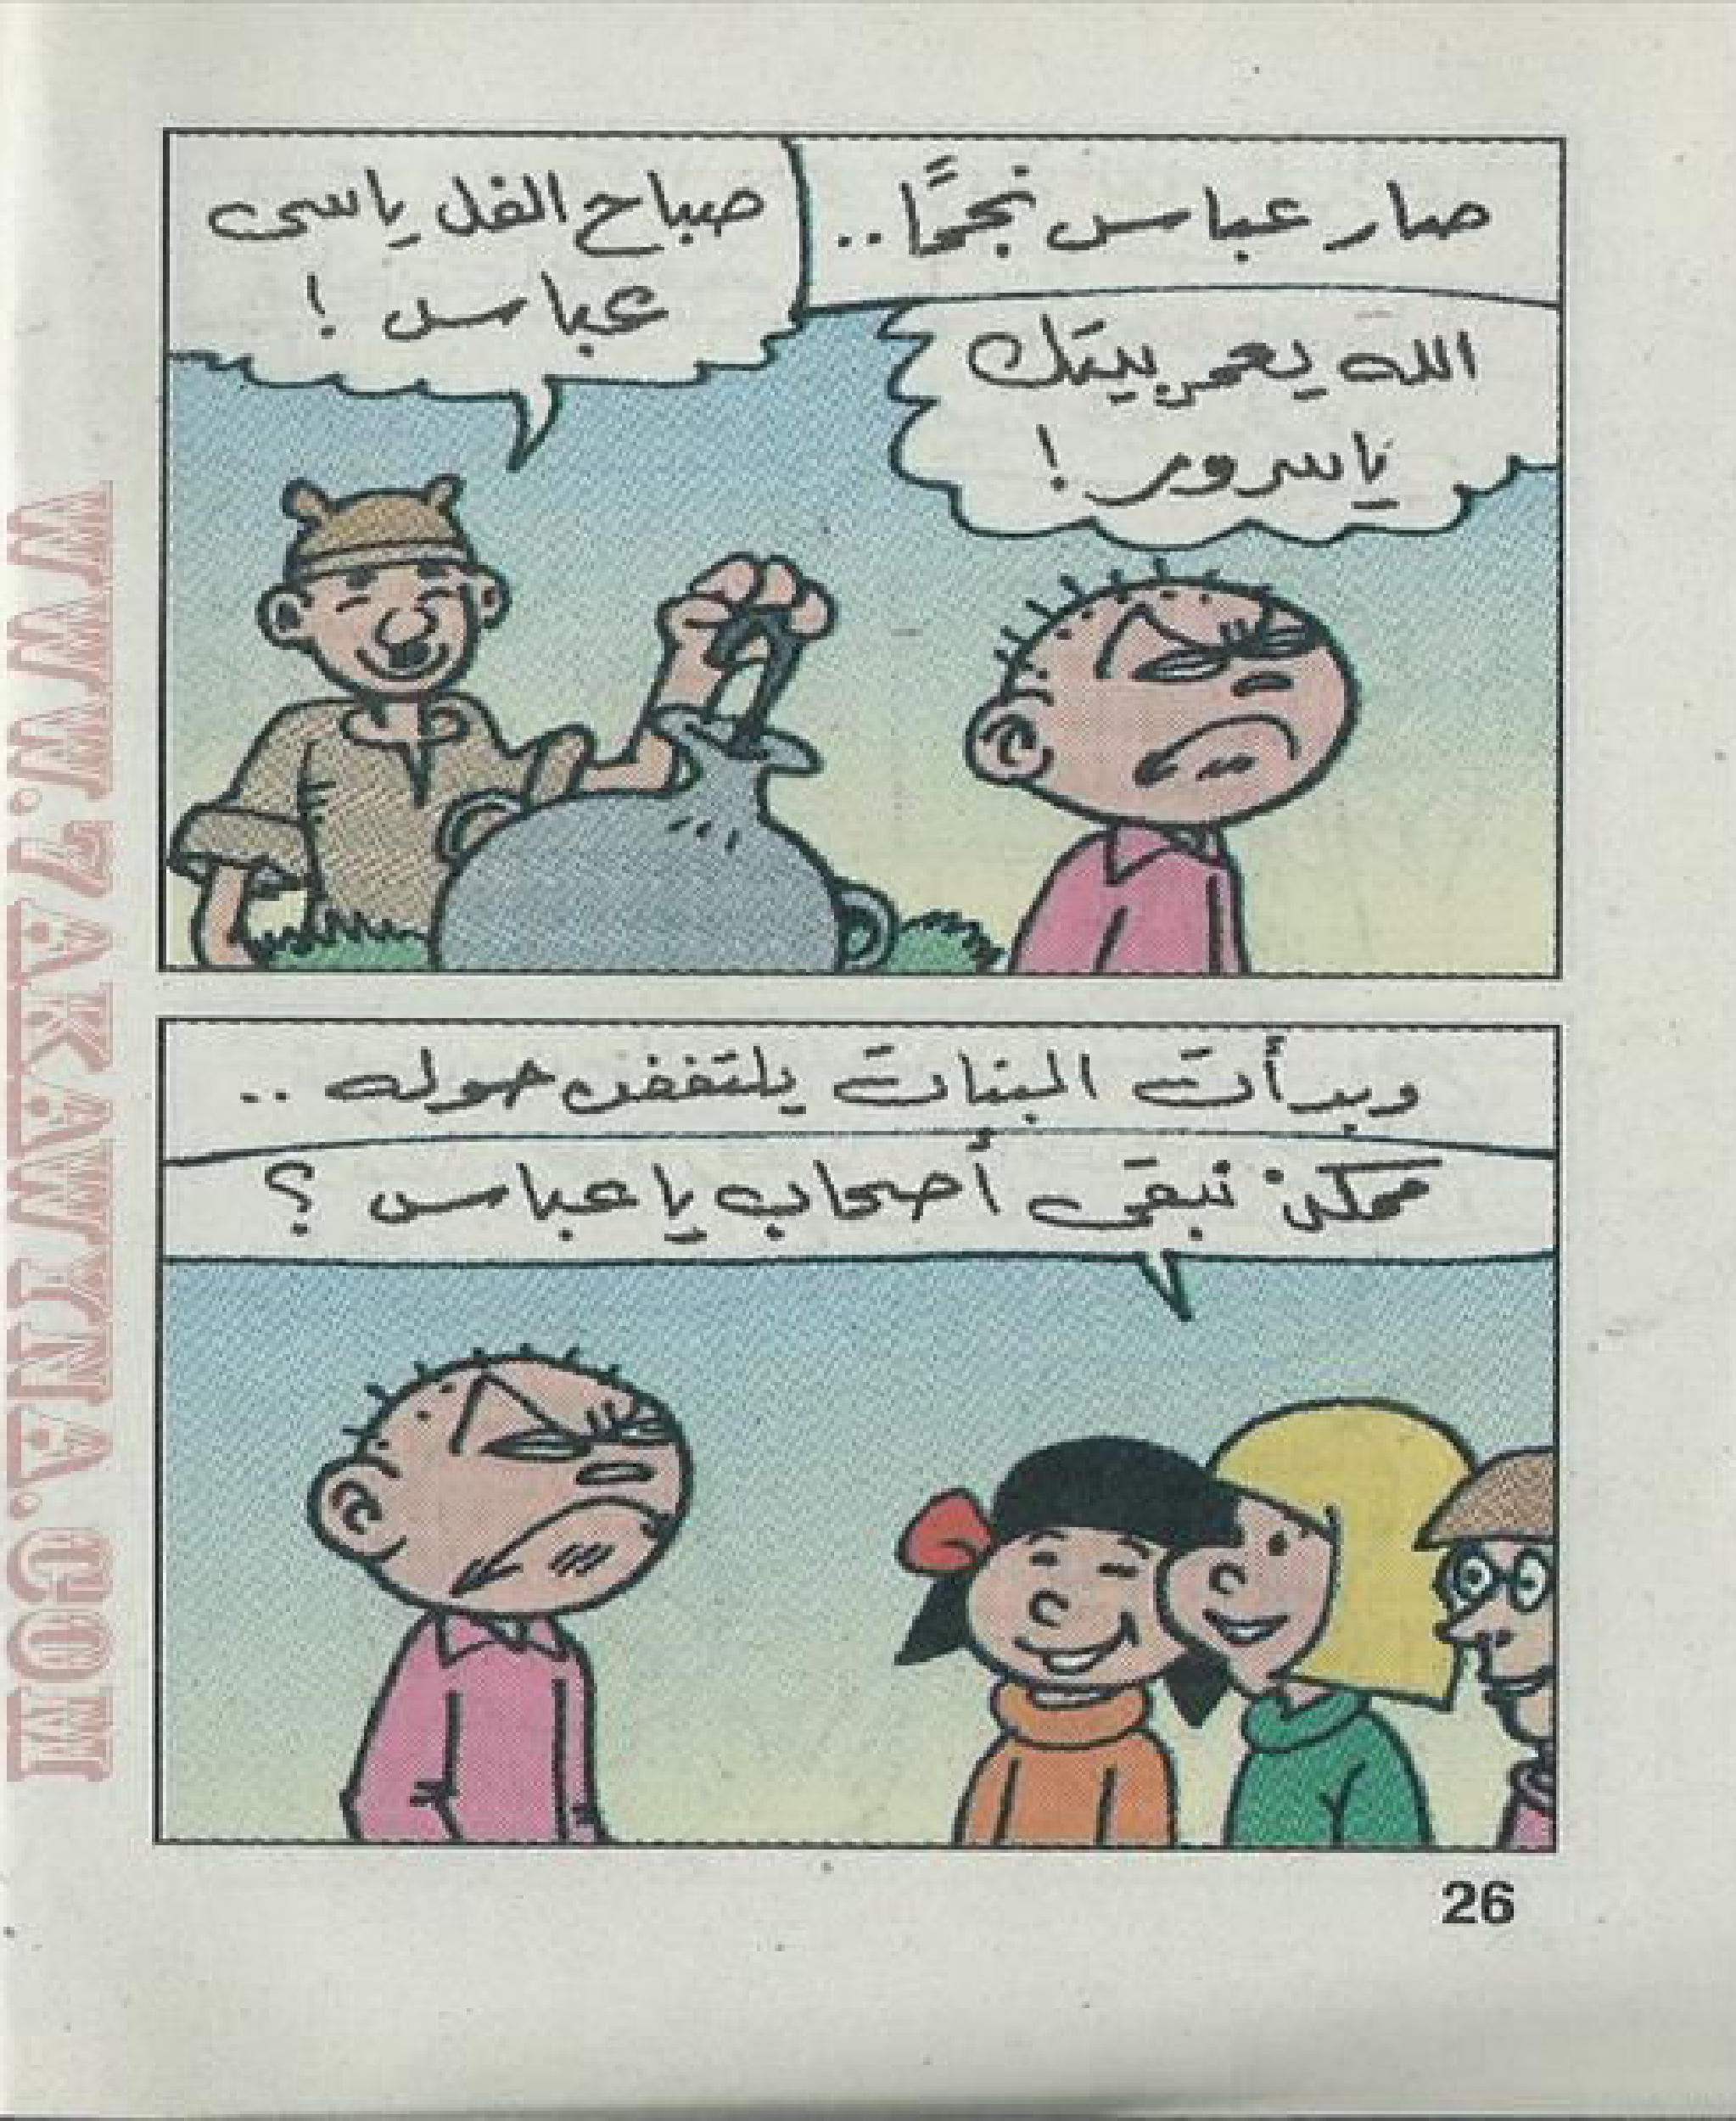 صار عباس نجمًا..
صباح الفل ياسى
عباس !
الله يعمر بيتك
ياسرور !
وبدأت البنات يلتففن حوله ..
ممكن نبقى أصحاب يا عباس ؟
26
WWW.7AKAWYNA.COM